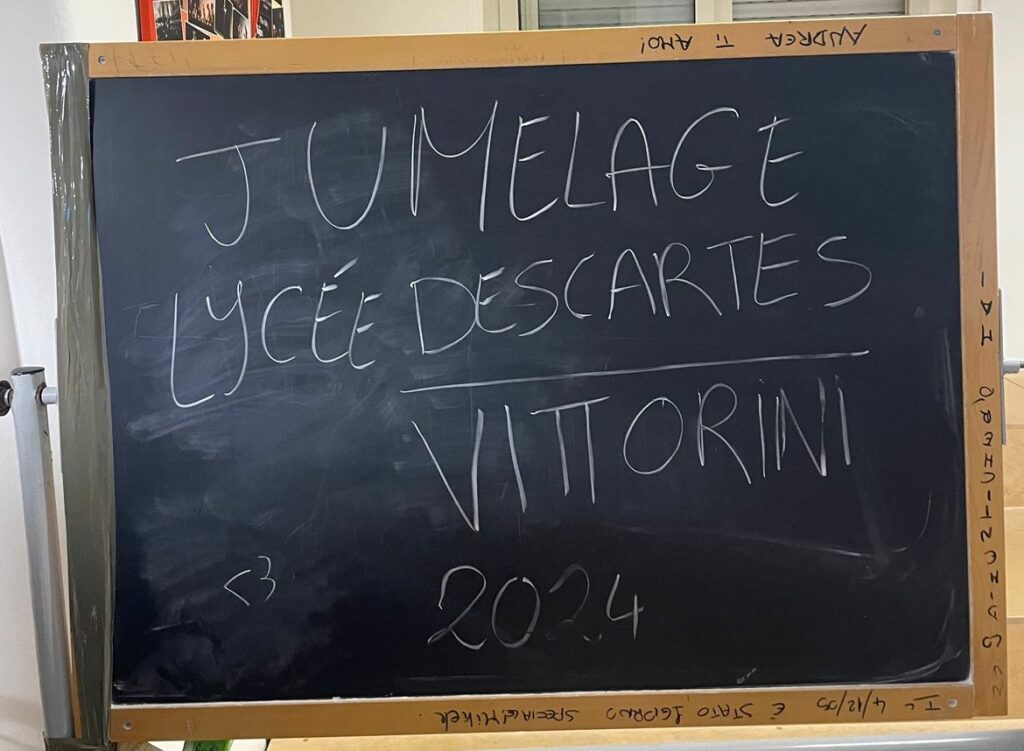 ANDREA TI AMO!
JUMELAGE
LYCÉE DESCARTES
VITTORINI
<3
2024
IL 4/12/09 È STATO IL GIORNO SPECIALE! Mikek.